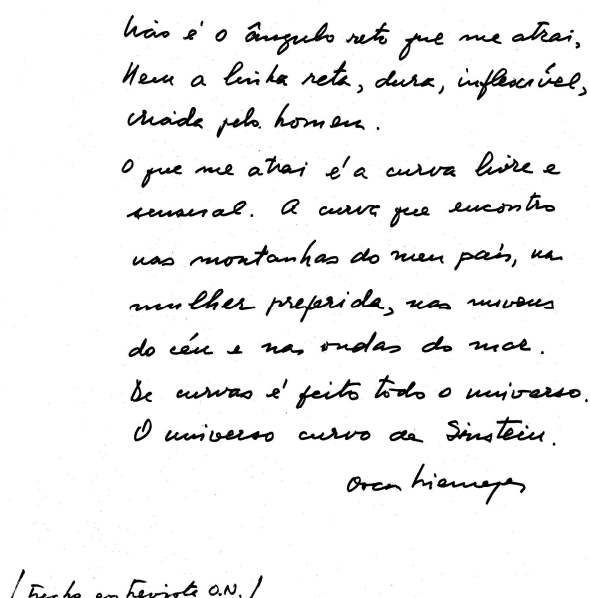 Não é o ângulo reto que me atrai,
Nem a linha reta, dura, inflexível,
criada pelo homem.
O que me atrai é a curva livre e
sensual. A curva que encontro
nas montanhas do meu país, na
mulher preferida, nas nuvens
do céu e nas ondas do mar.
De curvas é feito todo o universo.
O universo curvo de Einstein.
Oscar Niemeyer
/ Trecho entrevista O.N. /